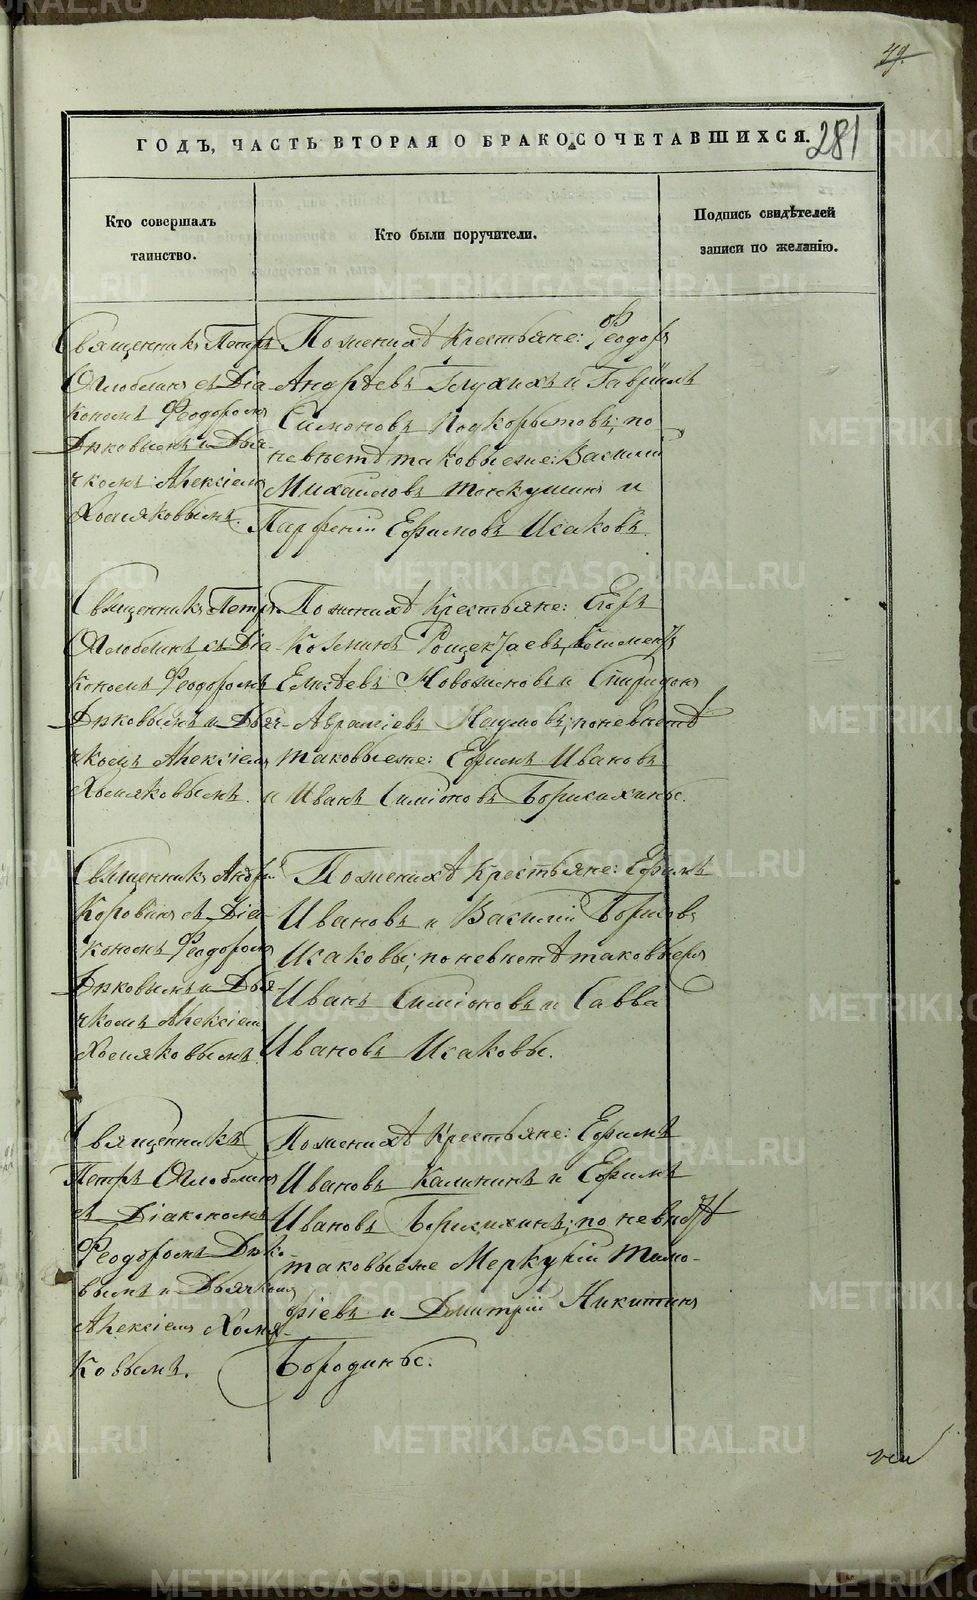 49.
281
ГОДЪ, ЧАСТЬ ВТОРАЯ О БРАКОСОЧЕТАВШИХСЯ.
Кто совершалъ
таинство.
Кто были поручители.
Подпись свидѣтелей
записи по желанію.
Священникъ Петръ
Оглоблинъ съ Діа-
кономъ Феодоромъ
Дьковымъ и Дья-
чкомъ Алексіемъ
Хомяковымъ.
По женихѣ крестьяне: Феодоръ
Андрѣевъ Глухихъ и Гавріилъ
Симоновъ Подкорытовъ; по
невѣстѣ таковыеже: Василій
Михайловъ и
Парфеній Ефимовъ Исаковъ.
Священникъ Петръ
Оглоблинъ съ Діа-
кономъ Феодоромъ
Дьковымъ и Дья-
чкомъ Алексіемъ
Хомяковымъ.
По женихѣ крестьяне: Егоръ
Козминъ Рощектаевъ, Климентъ
Елисѣевъ Новоселовъ и Спиридонъ
Авраміевъ Наумовъ; по невѣстѣ
таковыеже: Ефимъ Ивановъ
и Иванъ Симіоновъ Борисихины.
Священникъ Андрей
Коровинъ съ Діа-
кономъ Феодоромъ
Дьковымъ и Дья-
чкомъ Алексіемъ
Хомяковымъ.
По женихѣ крестьяне: Ефимъ
Ивановъ и Василій Борисовъ
Исаковы; по невѣстѣ таковыеже
Иванъ Симіоновъ и Савва
Ивановъ Исаковы.
Священникъ
Петръ Оглоблинъ
съ Діакономъ
Феодоромъ Дько-
вымъ и Дьячкомъ
Алексіемъ Хомя-
ковымъ.
По женихѣ крестьяне: Ефимъ
Ивановъ Калининъ и Ефимъ
Ивановъ Борисихинъ; по невѣстѣ
таковыеже Меркурій Тимо-
фіевъ и Дмитрій Никитинъ
Бородины.
METRIKI.GASO-URAL.RU